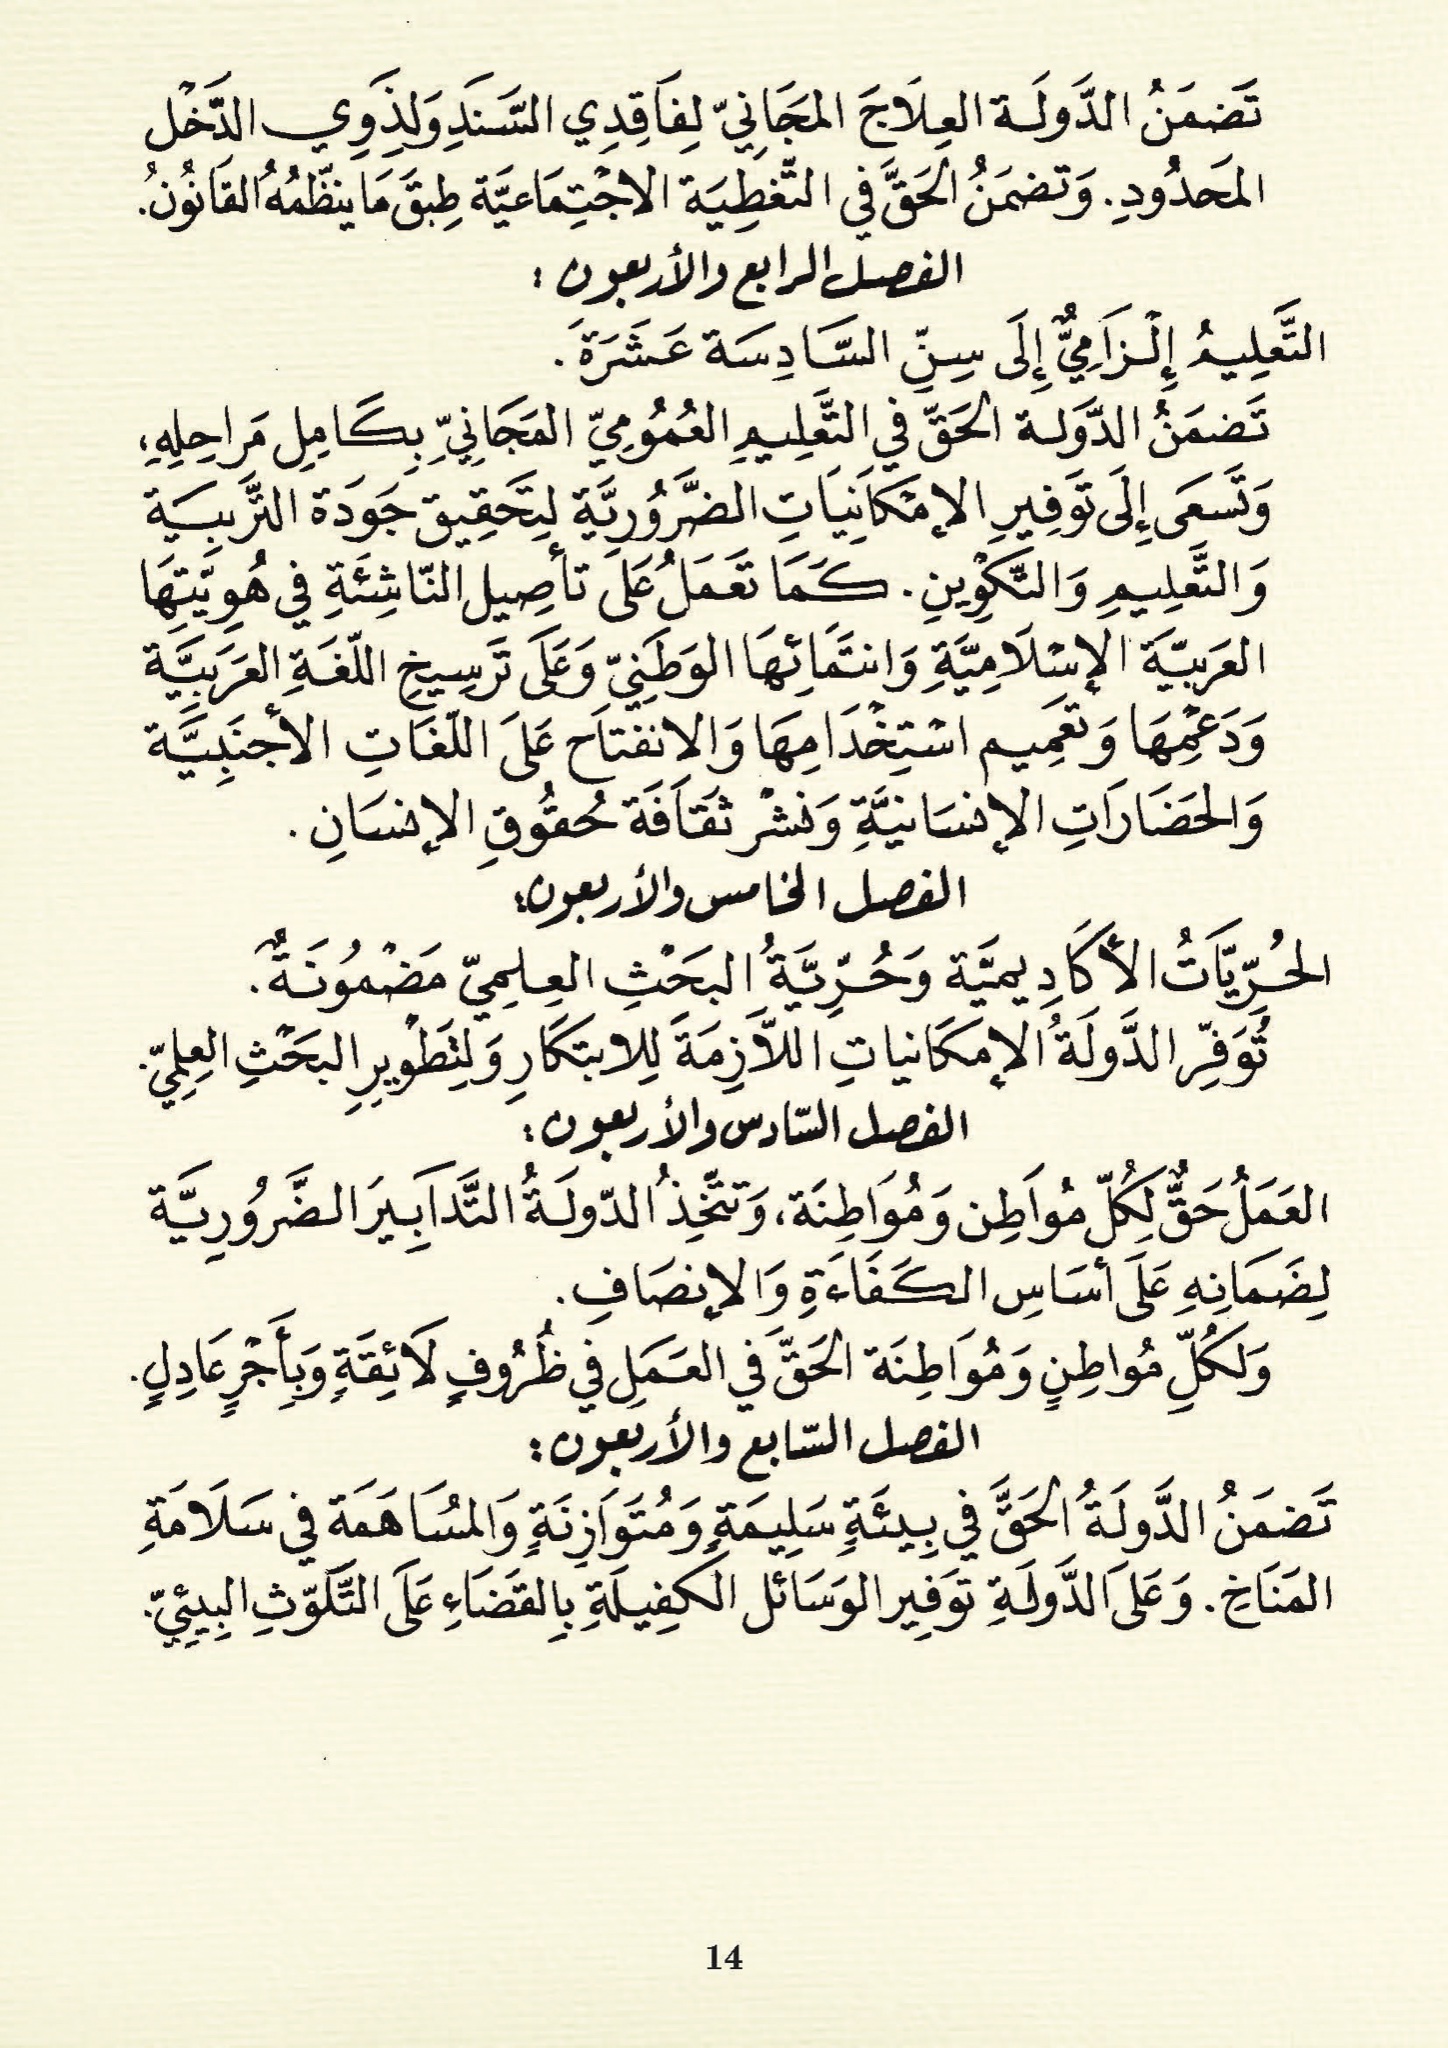 تَضمَنُ الدَّولَة العِلَاجَ المجَانِيّ لِفَاقِدِي السَّنَدِ وَلِذَوِي الدَّخْل
المَحدُودِ. وَتضمَنُ الحَقَّ في التَّغطِيَة الاجْتِمَاعيَّة طِبقَ مَا ينظّمُهُ القَانُونُ.
الفصل الرابع والأربعون :
التَّعَلِيمُ إلْزَامِيٌّ إِلَى سِنِّ السَّادِسَة عَشَرَةَ .
تَضمَنُ الدَّولَة الحَقّ في التَّعلِيمِ العُمُومِيّ المَجَانِيِّ بِكَامِلِ مَراحِلِهِ،
وَتَسعَى إِلَى تَوفِيرِ الإمْكَانِيَاتِ الضَّرُورِيَّة لِتَحَقِيق جَودَة التَّربيَة
وَالتَّعلِيمِ وَالتَّكْوِينِ. كَمَا تَعمَلُ عَلَى تأصِيل النّاشِئَةِ في هُوِيَّتِهَا
العَربيَّة الإسْلَامِيَّةِ وَانتمَائِهَا الوَطَنِيّ وَعَلَى تَرسِيخِ اللّغَةِ العَرَبِيَّة
وَدَعْمِهَا وَتعمِيم اسْتِخْدَامِهَا وَالانفتاح عَلَى اللّغَاتِ الأجنَبِيَّة
وَالحَضَارَاتِ الإنسَانيَّةِ وَنشْر ثقَافَة حُقُوقِ الإنسَانِ .
الفصل الخامس والأربعون:
الحُرِّيَّاتُ الأكَادِيميَّة وَحُرِّيَّةُ البَحْثِ العِلمِيّ مَضْمُونَةٌ.
تُوَفِّر الدَّولَةُ الإمكَانياتِ اللاَّزِمَةَ لِلابتكَارِ وَلِتَطْويرِ البَحْثِ العِلمِيّ.
الفصل السّادس والأربعون :
العَمَلُ حَقٌّ لِكُلّ مُوَاطِن وَمُوَاطِنَة، وَتتَّخِذُ الدّولَةُ التَّدَابِيرَ الضَّرُورِيَّة
لِضَمَانِهِ عَلَى أسَاسِ الكَفَاءَةِ وَالإنصَافِ.
وَلكُلِّ مُواطِنٍ وَمُوَاطِنَة الحَقّ في العَمَلِ في ظُرُوفٍ لَائِقَةٍ وَبِأَجْرٍ عَادِلٍ.
الفصل السّابع والأربعون :
تَضمَنُ الدَّولَةُ الحَقَّ في بِيئَةٍ سَلِيمَةٍ وَمُتَوَازِنَةٍ وَالمسُاَهَمَة في سَلَامَةِ
المَنَاخِ. وَعَلَى الدَّولَةِ تَوفِير الوَسَائل الكَفِيلَةِ بِالقَضَاءِ عَلَى التَّلَوّثِ البِيئِيّ.
14